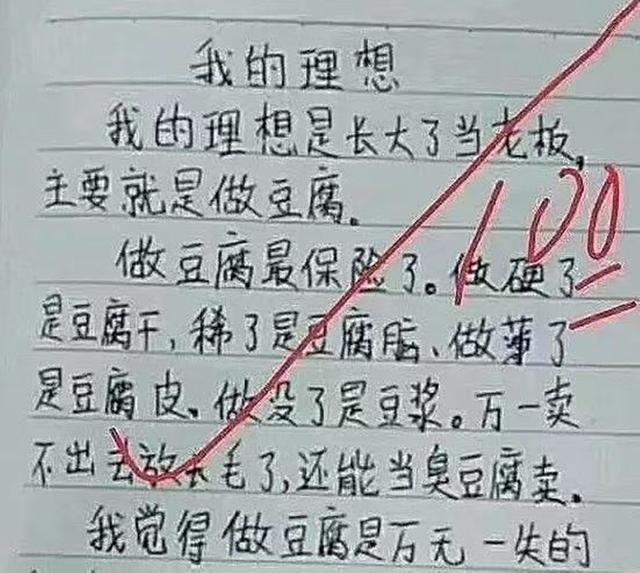 我的理想
我的理想是长大了当老板,
主要就是做豆腐。
做豆腐最保险了。做硬了
是豆腐干,稀了是豆腐脑、做薄了
是豆腐皮、做没了是豆浆。万一卖
不出去放长毛了,还能当臭豆腐卖。
我觉得做豆腐是万无一失的
100